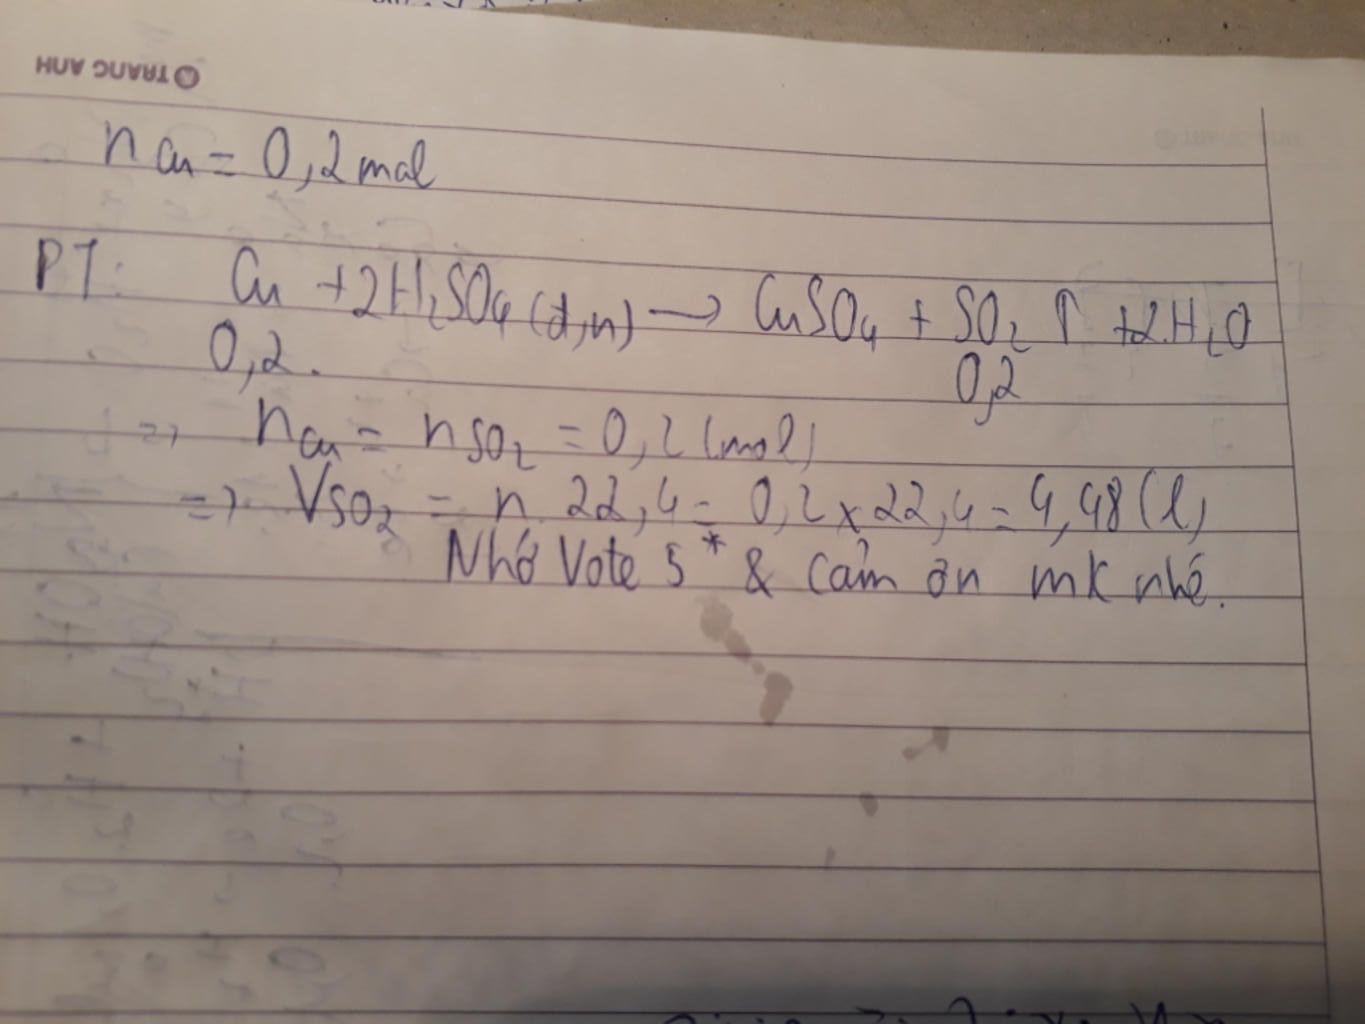 TRANG ANH
n Cu = 0,2 mol
PT: Cu + 2H₂SO₄ (đ,n) → CuSO₄ + SO₂ ↑ + 2H₂O
0,2. 0,2
=> nCu = nSO₂ = 0,2 (mol)
=> VSO₂ = n. 22,4 = 0,2 x 22,4 = 4,48 (l)
Nhớ Vote 5* & Cảm ơn mk nhé.